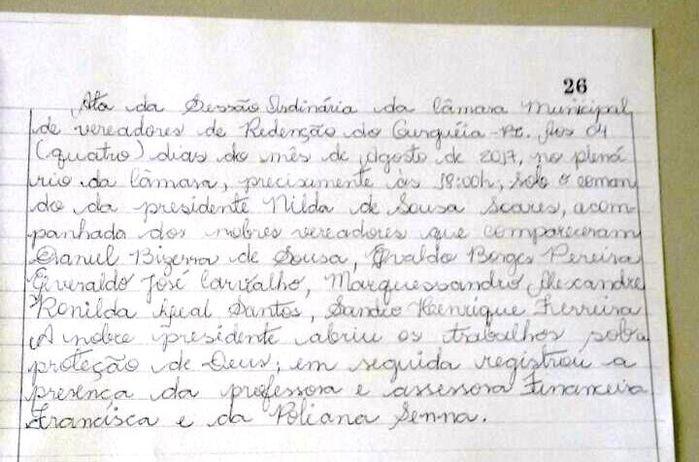 26
Ata da Sessão Ordinária da Câmara Municipal
de vereadores de Redenção do Gurguéia-PI. Aos 04
(quatro) dias do mês de Agosto de 2017, no plená
rio da Câmara, precisamente às 18:00h, sob o coman
do da presidente Nilda de Sousa Soares, acom-
panhada dos nobres vereadores que compareceram
Bizerra de Sousa, Borges Pereira
Giveraldo José Carvalho, Marquessandro Alexandre
Ronilda Santos, Sandro Henrique Ferreira
A nobre presidente abriu os trabalhos sob a
proteção de Deus; em seguida registrou a
presença da professora e assessora Financeira
Francisca e da Poliana Senna.